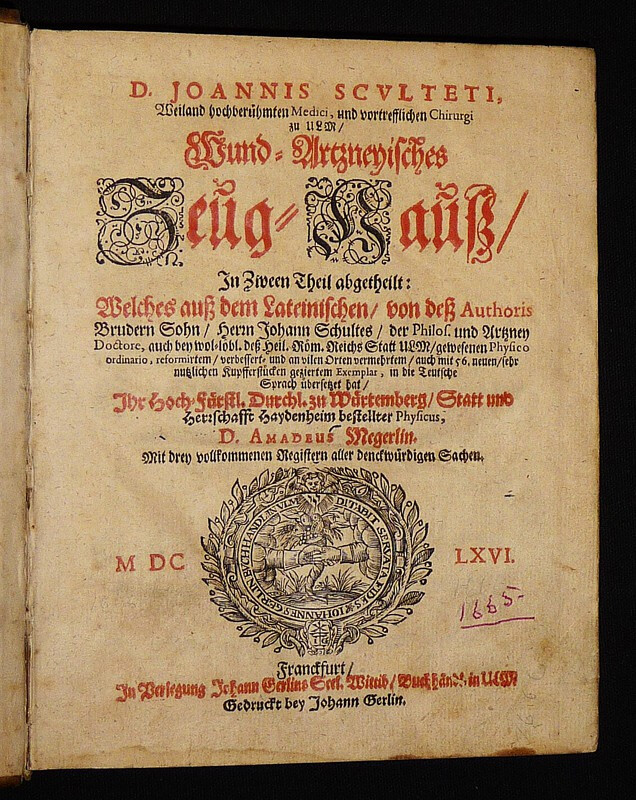 D. JOANNIS SCVLTETI,
Weiland hochberühmten Medici, und vortrefflichen Chirurgi
zu ULM/
Wund-Artzneyisches
Zeüg-Hauß/
In Zween Theil abgetheilt:
Welches auß dem Lateinischen/ von deß Authoris
Brudern Sohn/ Herꝛn Johann Schultes/ der Philos. und Artzney
Doctore, auch bey wol-lobl. deß Heil. Röm. Reichs Statt ULM/ gewesenen Physico
ordinario, reformirtem/ verbessert- und an vilen Orten vermehrtem/ auch mit 56. neuen/ sehr
nutzlichen Kupfferstücken geziertem Exemplar, in die Teutsche
Sprach übersetzet hat/
Ihr Hoch-Fürstl. Durchl. zu Würtemberg/ Statt und
Herꝛschafft Haydenheim bestellter Physicus,
D. AMADEUS Megerlin.
Mit drey vollkommenen Registern aller denckwürdigen Sachen.
DITABIT SERVATA FIDES * IOHANNES GERLIN BUCHHANDL: IN VLM
M DC LXVI.
1665-
Franckfurt/
In Verlegung Johann Gerlins Seel. Wittib/ Buchhändl. in ULM
Gedruckt bey Johann Gerlin.